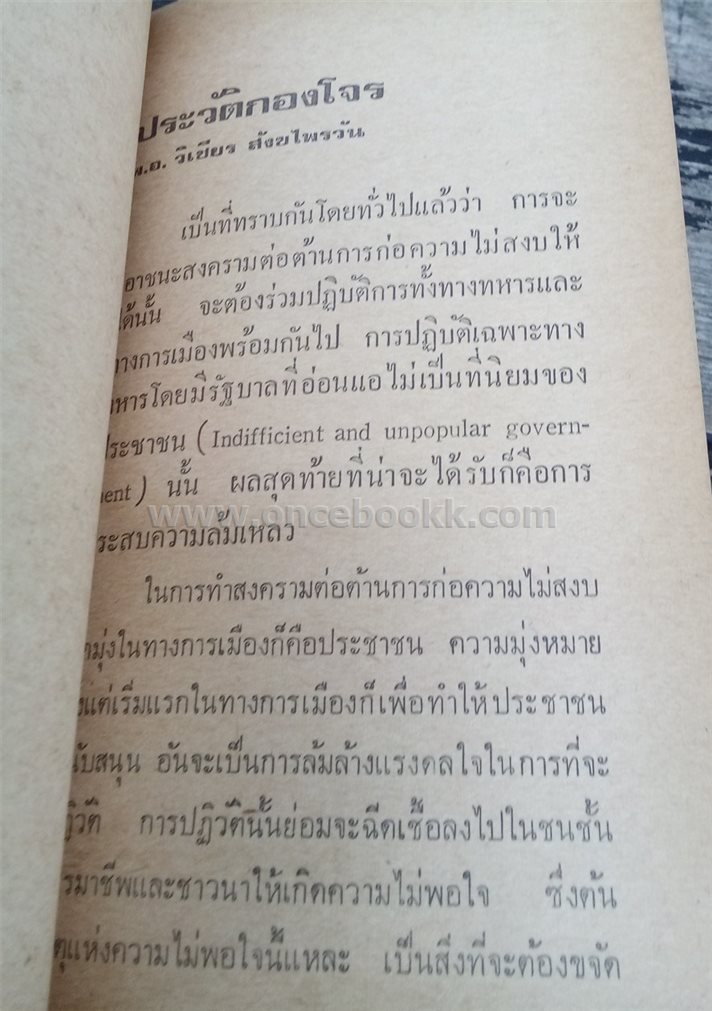 ประวัติกองโจร
พ.อ. วิเชียร สังขไพรวัน
เป็นที่ทราบกันโดยทั่วไปแล้วว่า การจะ
อาชนะสงครามต่อต้านการก่อความไม่สงบให้
ได้นั้น จะต้องร่วมปฏิบัติการทั้งทางทหารและ
ทางการเมืองพร้อมกันไป การปฏิบัติเฉพาะทาง
ทหารโดยมีรัฐบาลที่อ่อนแอไม่เป็นที่นิยมของ
ประชาชน (Indifficient and unpopular govern-
ment) นั้น ผลสุดท้ายที่น่าจะได้รับก็คือการ
ประสบความล้มเหลว
www.oncebookk.com
ในการทำสงครามต่อต้านการก่อความไม่สงบ
มุ่งในทางการเมืองก็คือประชาชน ความมุ่งหมาย
แต่เริ่มแรกในทางการเมืองก็เพื่อทำให้ประชาชน
นับสนุน อันจะเป็นการล้มล้างแรงดลใจในการที่จะ
ฏิวัติ การปฏิวัตินี้นย่อมจะฉีดเชื้อลงไปในชนชั้น
รมาชีพและชาวนาให้เกิดความไม่พอใจ ซึ่งต้น
ตุแห่งความไม่พอใจนี้แหละ เป็นสิ่งที่จะต้องขจัด